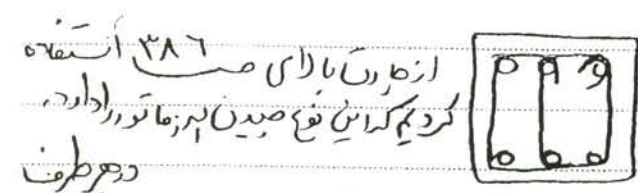 از کارت بارای صت ۳۸۶ استفاده
کردیم که این نوع چیدن آرماتور را دارد.
در هر طرف